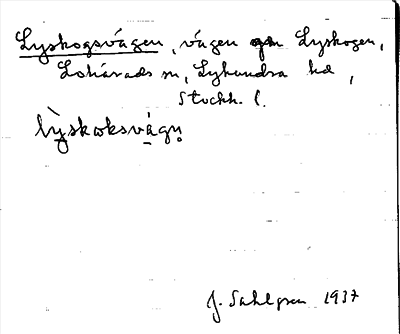 Lyskogsvägen, vägen gm Lyskogen,
Lohärads sn, Lyhundra hd,
Stockh. l.
lỳskωksvägṇ
J. Sahlgren 1937